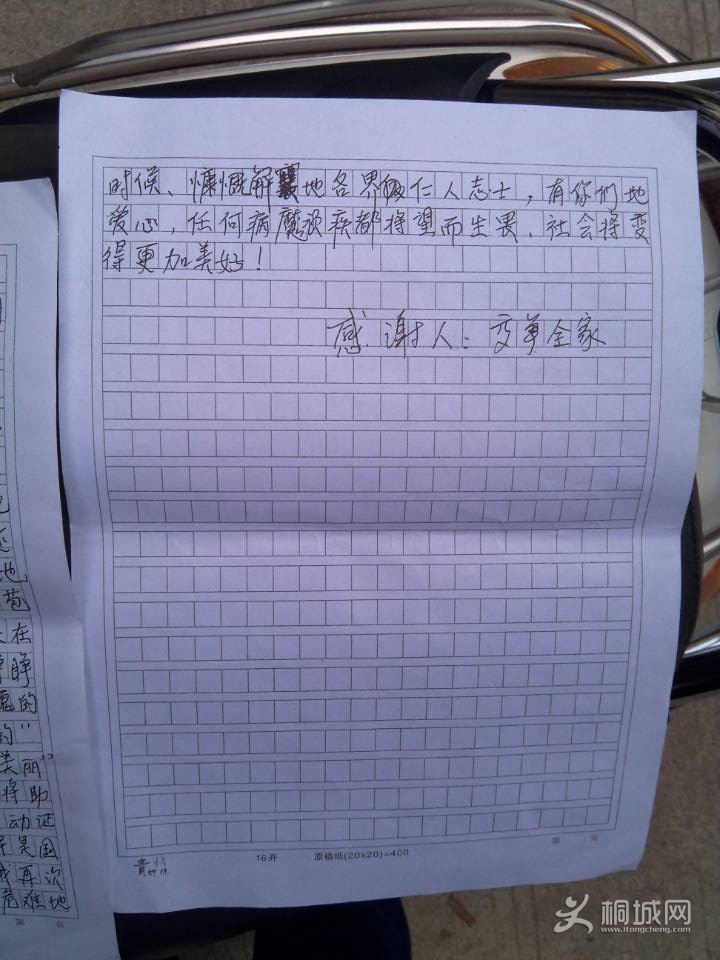 时候、慷慨解囊地各界仁人志士，有你们地
爱心，任何病魔顽疾都将望而生畏、社会将变
得更加美好！
感谢人：全家
地
在
睁
的
的”
美丽”
将助
动证
是国
再次
危难地
第 页
16开 原稿纸(20×20)=400
第 页
桐城网
www.itongcheng.com